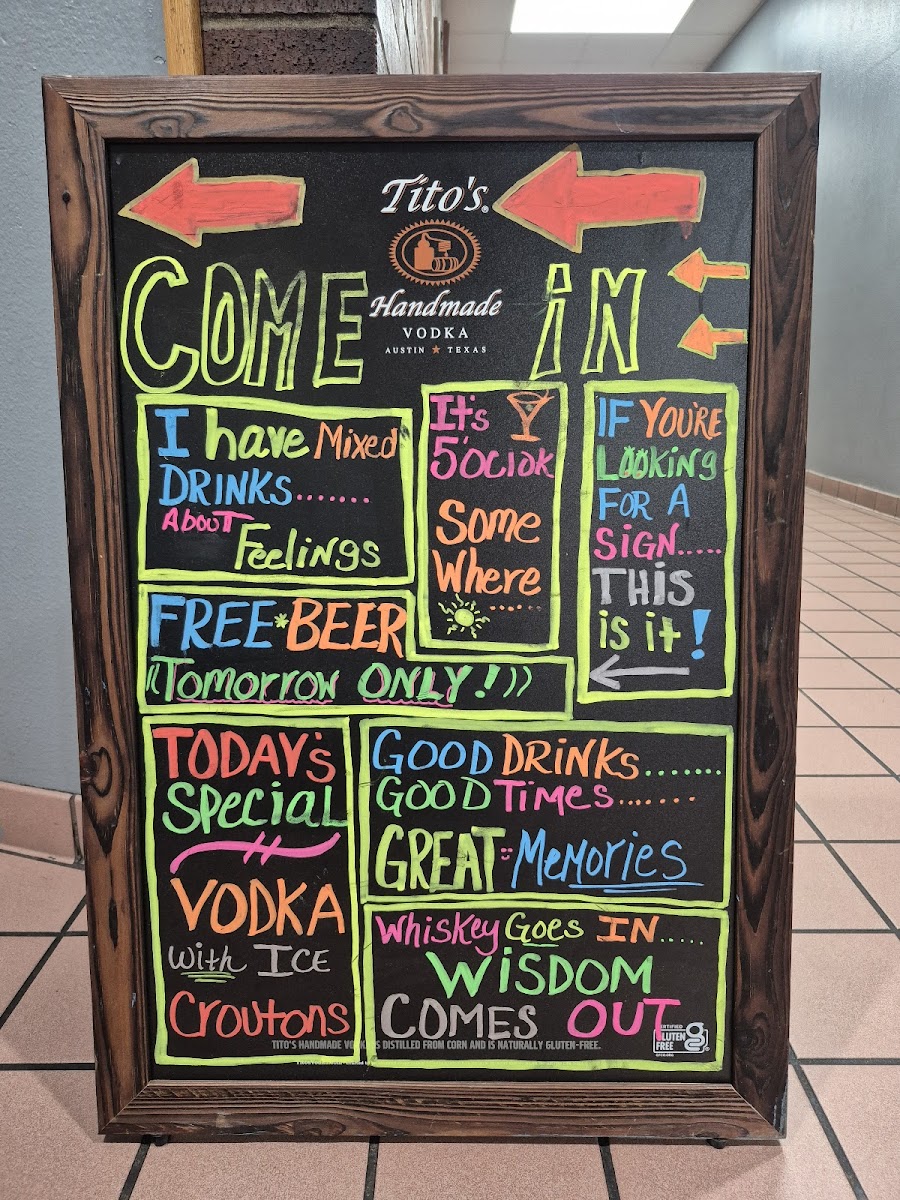 Tito's®
Handmade
VODKA
AUSTIN ★ TEXAS
COME IN
I have Mixed
DRINKS.......
About
Feelings
It's
5'OClOK
Some
Where
.....
IF YOU'RE
LOOKING
FOR A
SIGN.....
THIS
is it!
FREE*BEER
((Tomorrow ONLY!))
TODAY's
Special
VODKA
With ICE
Croutons
GOOD DRINKS........
GOOD Times.......
GREAT Memories
Whiskey Goes IN.....
WiSDOM
COMES OUT
CERTIFIED
GLUTEN
FREE
GFCO.ORG
TITO'S HANDMADE VODKA IS DISTILLED FROM CORN AND IS NATURALLY GLUTEN-FREE.